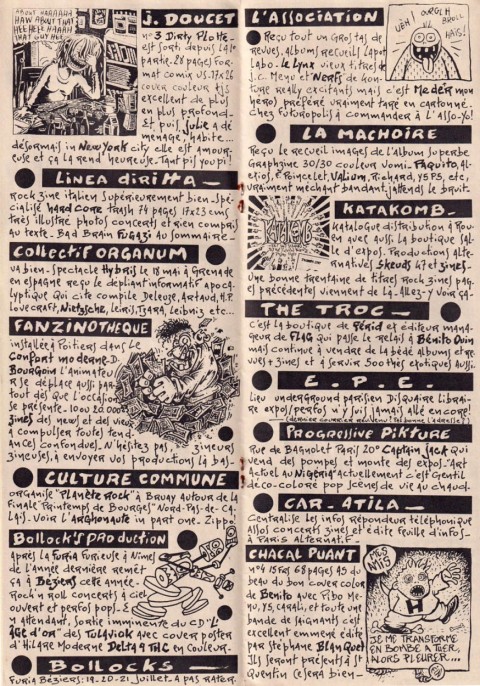 ABOUT HAAAAAH
HAW ABOUT THAT
HEE HEE HAAAH
THAT GUY HEE
J. DOUCET
n°3 Dirty Plotte
est sorti depuis la 1o
partie. 28 pages for-
mat comix US. 17x26
cover couleur tjs
excellent de plus
en plus profond.
Et puis Julie a dé
ménagé, habite
désormais in New York city elle est amour-
euse et ça la rend heureuse. Tant pis you pi!
LINEA DIRITTA
Rock zine italien supérieurement bien spé-
cialisé hard core trash 74 pages 17x23 cms
très illustré photos concerts et rien compris
au texte. Bad Brain Fugazi au sommaire
Collectif ORGANUM
va bien - spectacle Hybris le 18 mai à Grenade
en espagne reçu le dépliant informatif apoca
lyptique qui cite compile Deleuze, Artaud, H.P.
Lovecraft, Nietzsche, Leiris, Tzara, Leibniz etc...
FANZINOTHEQUE
installée à Poitiers dans le
Confort moderne - D.
Bourgoin l'animateur
se déplace aussi par
tout dès que l'occasion
se présente. 1000 20.000
zines des news et des vieux
à compulser toutes ten
ances confondues. N'hésitez pas, zineurs
zineuses, à envoyer vos productions là bas-
CULTURE COMMUNE
organise "Planète Rock" à Bruay autour de la
Finale "Printemps de Bourges" Nord-Pas-de-Ca-
lais. Voir L'Argonaute in part one. Zippo!
Bollock's production
Après la furia furieuse à Nîmes
de l'année dernière remet
ça à Béziers cette année.
Rock'n roll concerts à ciel
ouvert et perfos pops. E
n attendant, sortie imminente du CD "L'
âge d'or" des Tulaviok avec cover poster
d'Hilare Moderne Delta 9 THC en couleur.
Bollocks
Furia Béziers: 19-20-21 juillet. A pas rater.
L'ASSOCIATION
Reçu tout un gros tas de
revues. Albums recueil Lapot
Labo. Le Lynx vieux titres de
J.C. Menu et Nerfs de Gon-
ture really excitants mais c'est Meder mon
héros préféré vraiment taré en cartonné.
Chez Futuropolis à commander à l'Asso-Yo!
UĒH!
ARGLH
BROLL
LA MACHOIRE
Reçu le recueil images de l'album superbe
Graphzine 30/30 couleur vomi. Paquito, Al-
erios, E. Poincelet, Valium, Richard, Y5 P5, etc,
vraiment méchant bandant j'attends le bruit.
KATAKOMB
KATAKOMB
Katalogue distribution à Rou-
en avec aussi la boutique sal-
le d'expos. Productions alte-
rnatives skeuds K7 et zines
Une bonne trentaine de titres Rock zines pag
es précédentes viennent de là - Allez-y voir ça.
THE TROC
C'est la boutique de Périd et éditeur mana-
geur de FLAG qui passe le relais à Bénito Ouin
mais continue à vendre de la bédé albums et re-
vues + zines et à servir 500 thés exotiques aussi.
E.P.E.
Lieu underground parisien Disquaire librai-
re expos/perfos n'y suis jamais allé encore!
Progressive Pikture
Rue de Bagnolet Paris 20° Captain Jack qui
tend des pompes et monte des expos - "Art
Actuel au Nigéria" actuellement c'est gentil
déco-coloré pop scènes de vie au chaud.
CAR-ATILA
Centralise les infos répondeur téléphonique
Assos concerts zines et édite feuille d'infos-
à Paris alternatif
CHACAL PUANT
n°4 15frs 68 pages A5 du
beau du bon cover color
de Benito avec Pibo Me-
nu, Y5, Carali, et toute une
bande de saignants c'est
excellent emmené édité
par Stéphane Blanquet
Ils seront présents à St
Quentin ce sera bien-
MES
AMIS
H
JE ME TRANSFORME
EN BOMBE A TUER,
ALORS PLEURER...